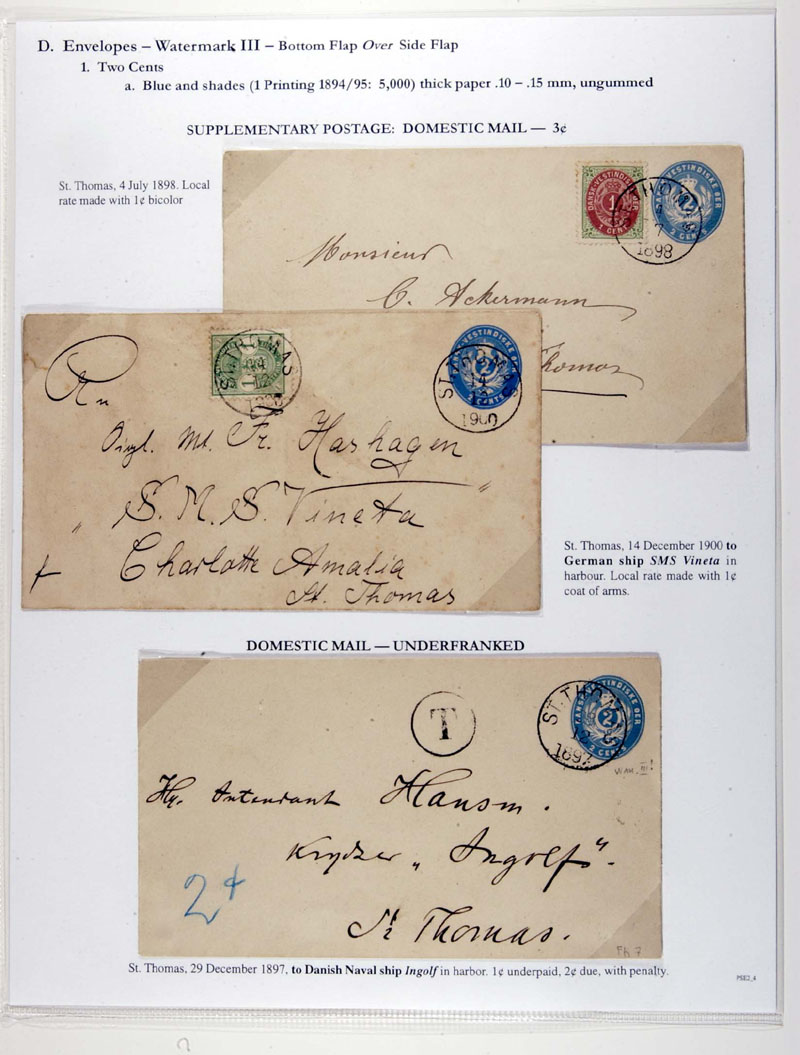 D. Envelopes – Watermark III – Bottom Flap Over Side Flap
1. Two Cents
a. Blue and shades (1 Printing 1894/95: 5,000) thick paper .10 – .15 mm, ungummed
SUPPLEMENTARY POSTAGE: DOMESTIC MAIL — 3¢
St. Thomas, 4 July 1898. Local
rate made with 1¢ bicolor
DANSK-VESTINDISKE
1
1 CENT
VESTINDISKE ØER
2
2 CENTS
ST. THOMAS
1898
Monsieur
C. Ackermann
Thomas
ST. THOMAS
14
12
VESTINDISKE ØER
2
2 CENTS
ST. THOMAS
14
12
1900
An
Fr. Hashagen
„ S. M. S. Vineta "
Charlotte Amalia
St. Thomas
St. Thomas, 14 December 1900 to
German ship SMS Vineta in
harbour. Local rate made with 1¢
coat of arms.
DOMESTIC MAIL — UNDERFRANKED
T
ST. THOMAS
12
1897
DANSK VESTINDISKE ØER
2
2 CENTS
WMK. III!
Hr. Intendant Hansen.
Krydser „Ingolf".
2¢
St Thomas.
Ph 7
St. Thomas, 29 December 1897, to Danish Naval ship Ingolf in harbor. 1¢ underpaid, 2¢ due, with penalty.
PSE2_4